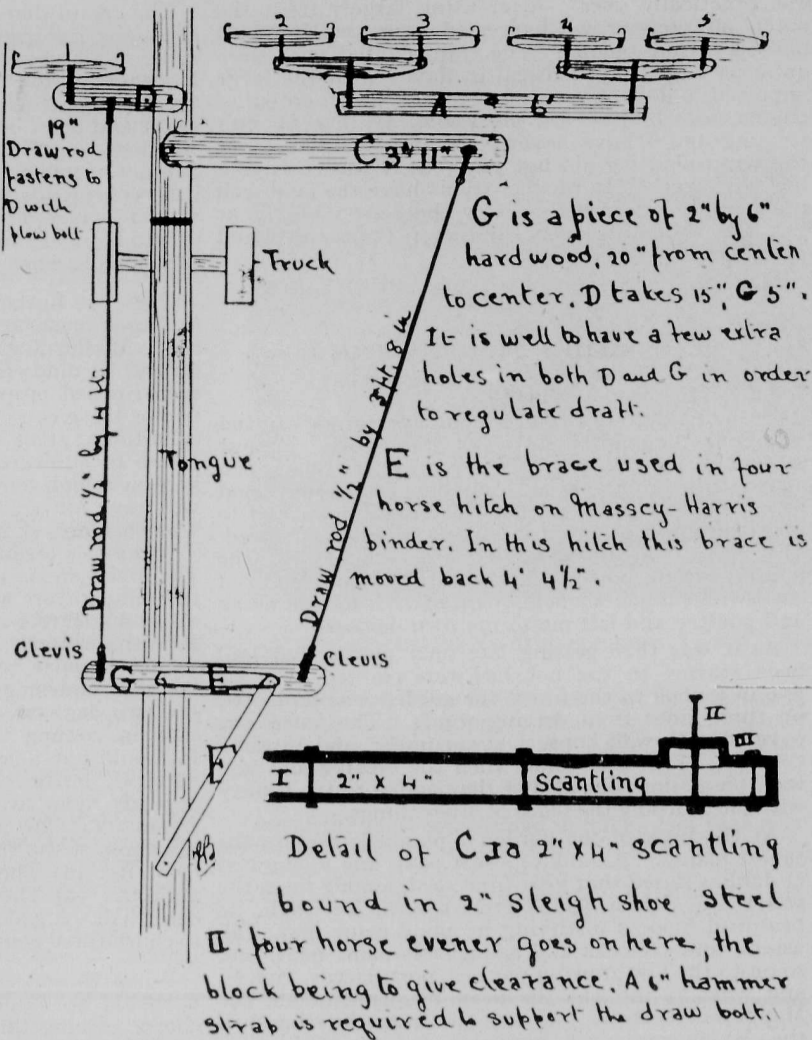 1 2 3 4 5
D
A 6'
19"
Draw rod
fastens to
D with
plow bolt
C 3ft 11"
Truck
G is a piece of 2" by 6"
hardwood, 20" from center
to center. D takes 15", G 5".
It is well to have a few extra
holes in both D and G in order
to regulate draft.
Draw rod 1/2" by 4 ft.
Tongue
Draw rod 1/2" by 5 ft. 8 in
E is the brace used in four
horse hitch on Massey-Harris
binder. In this hitch this brace is
moved back 4' 4½".
Clevis
Clevis
G E
II
III
I 2" x 4" Scantling
Detail of C I a 2" x 4" scantling
bound in 2" sleigh shoe steel
II four horse evener goes on here, the
block being to give clearance. A 6" hammer
strap is required to support the draw bolt.